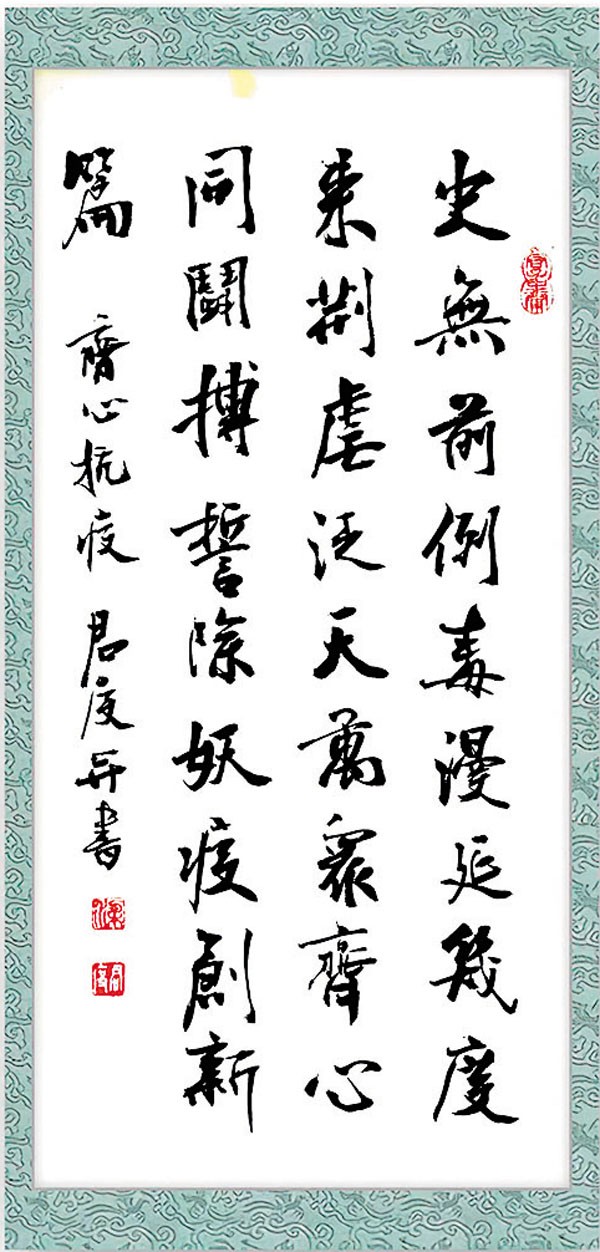 史無前例毒漫延幾度
来荆虐泛天萬眾齊心
同鬪搏誓除妖疫創新
篇 齊心抗疫 君度并書
君度